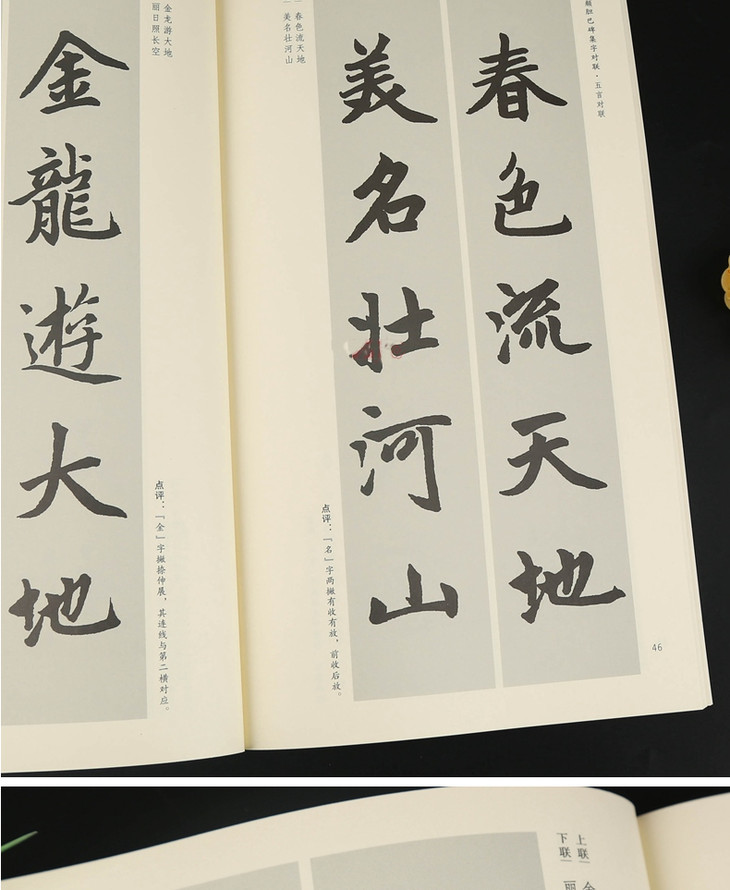 胆巴碑集字对联·五言对联
春色流天地
美名壮河山
春色流天地
美名壮河山
点评：「名」字两撇有收有放，前收后放。
46
金龙游大地
丽日照长空
金龍遊大地
点评：「金」字撇捺伸展，其连线与第二横对应。
上联
下联